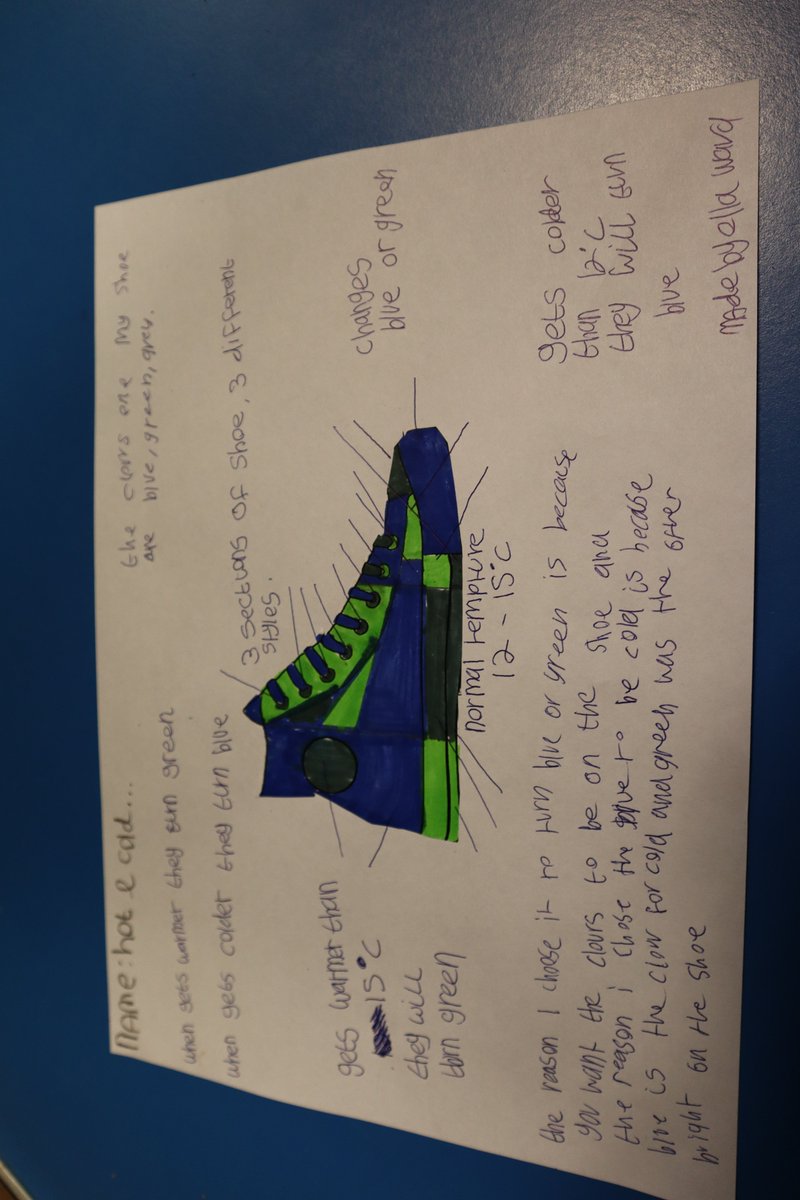 NAME: hot & cold...
the clours one my shoe
are blue, green, grey.
when gets warmer they turn green
when gets colder they turn blue
3 sections of shoe, 3 different
styles.
changes
blue or green
gets warmer than
15°C
they will
turn green
normal tempture
12 - 15°C
gets colder
than 12°C
they will turn
blue
the reason I choose it to turn blue or green is because
you want the clours to be on the shoe and
the reason i chose the blue to be cold is because
blue is the clour for cold and green was the other
bright on the shoe
made by ella ward